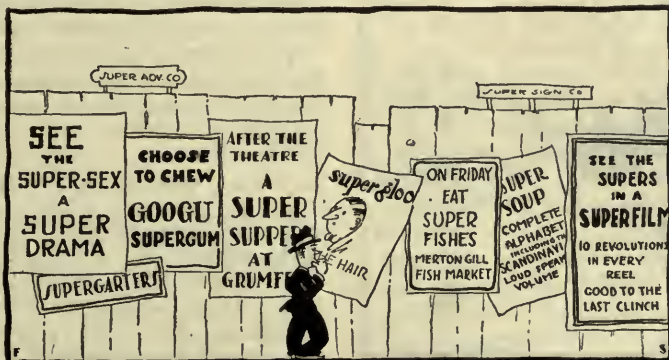 SUPER ADV. CO
SUPER SIGN CO
SEE
THE
SUPER-SEX
A
SUPER
DRAMA
SUPERGARTERS
CHOOSE
TO CHEW
GOOGU
SUPERGUM
AFTER THE
THEATRE
A
SUPER
SUPPER
AT
GRUMF
supergloo
THE HAIR
ON FRIDAY
EAT
SUPER
FISHES
MERTON GILL
FISH MARKET
SUPER
SOUP
COMPLETE
ALPHABET
INCLUDING THE
SCANDINAVI
LOUD SPEAK
VOLUME
SEE THE
SUPERS
IN A
SUPERFILM
10 REVOLUTIONS
IN EVERY
REEL
GOOD TO THE
LAST CLINCH
F
S